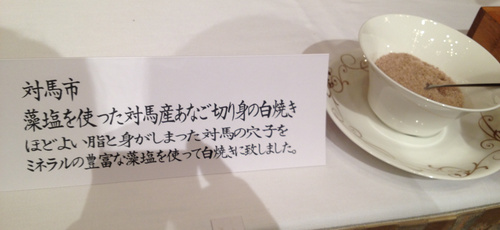 対馬市
藻塩を使った対馬産あなご切り身の白焼き
ほどよい脂と身がしまった対馬の穴子を
ミネラルの豊富な藻塩を使って白焼きに致しました。